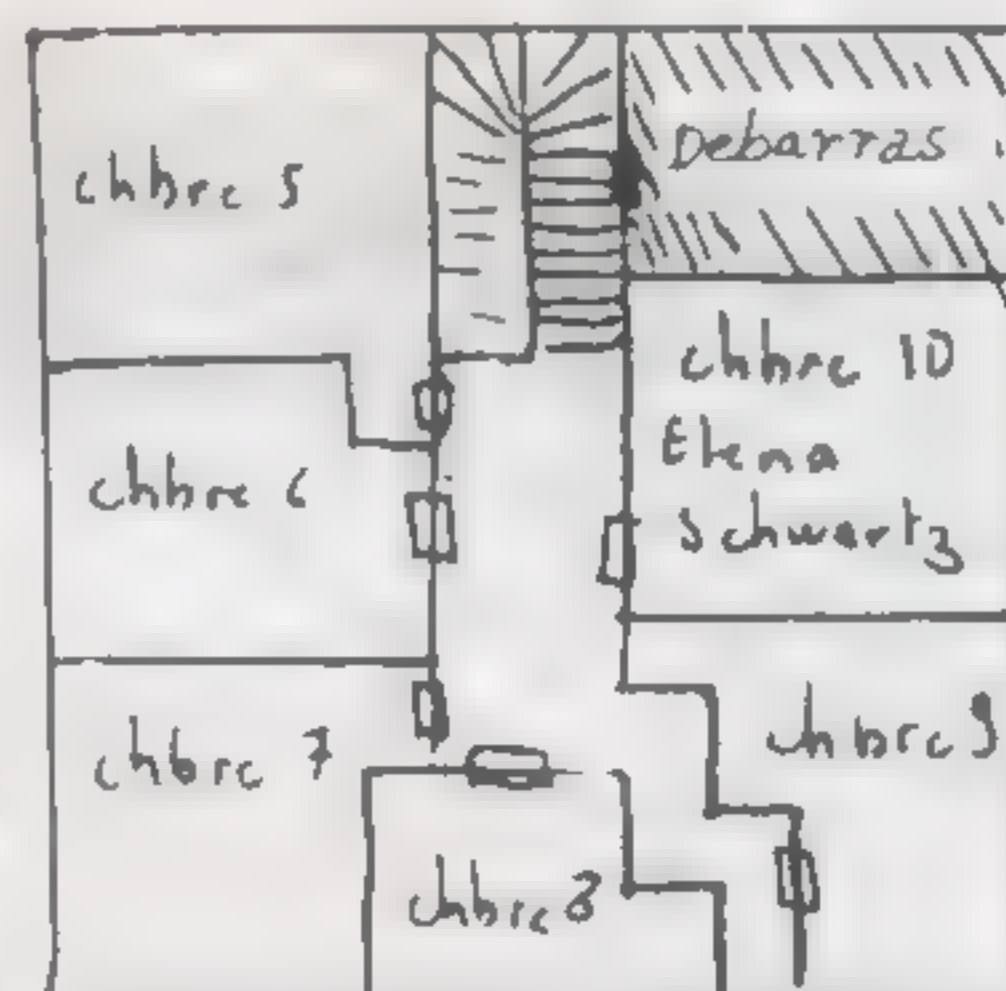 chbre 5
Debarras
chbre 10
Elena
Schwartz
chbre 6
chbre 7
chbre 9
chbre 8